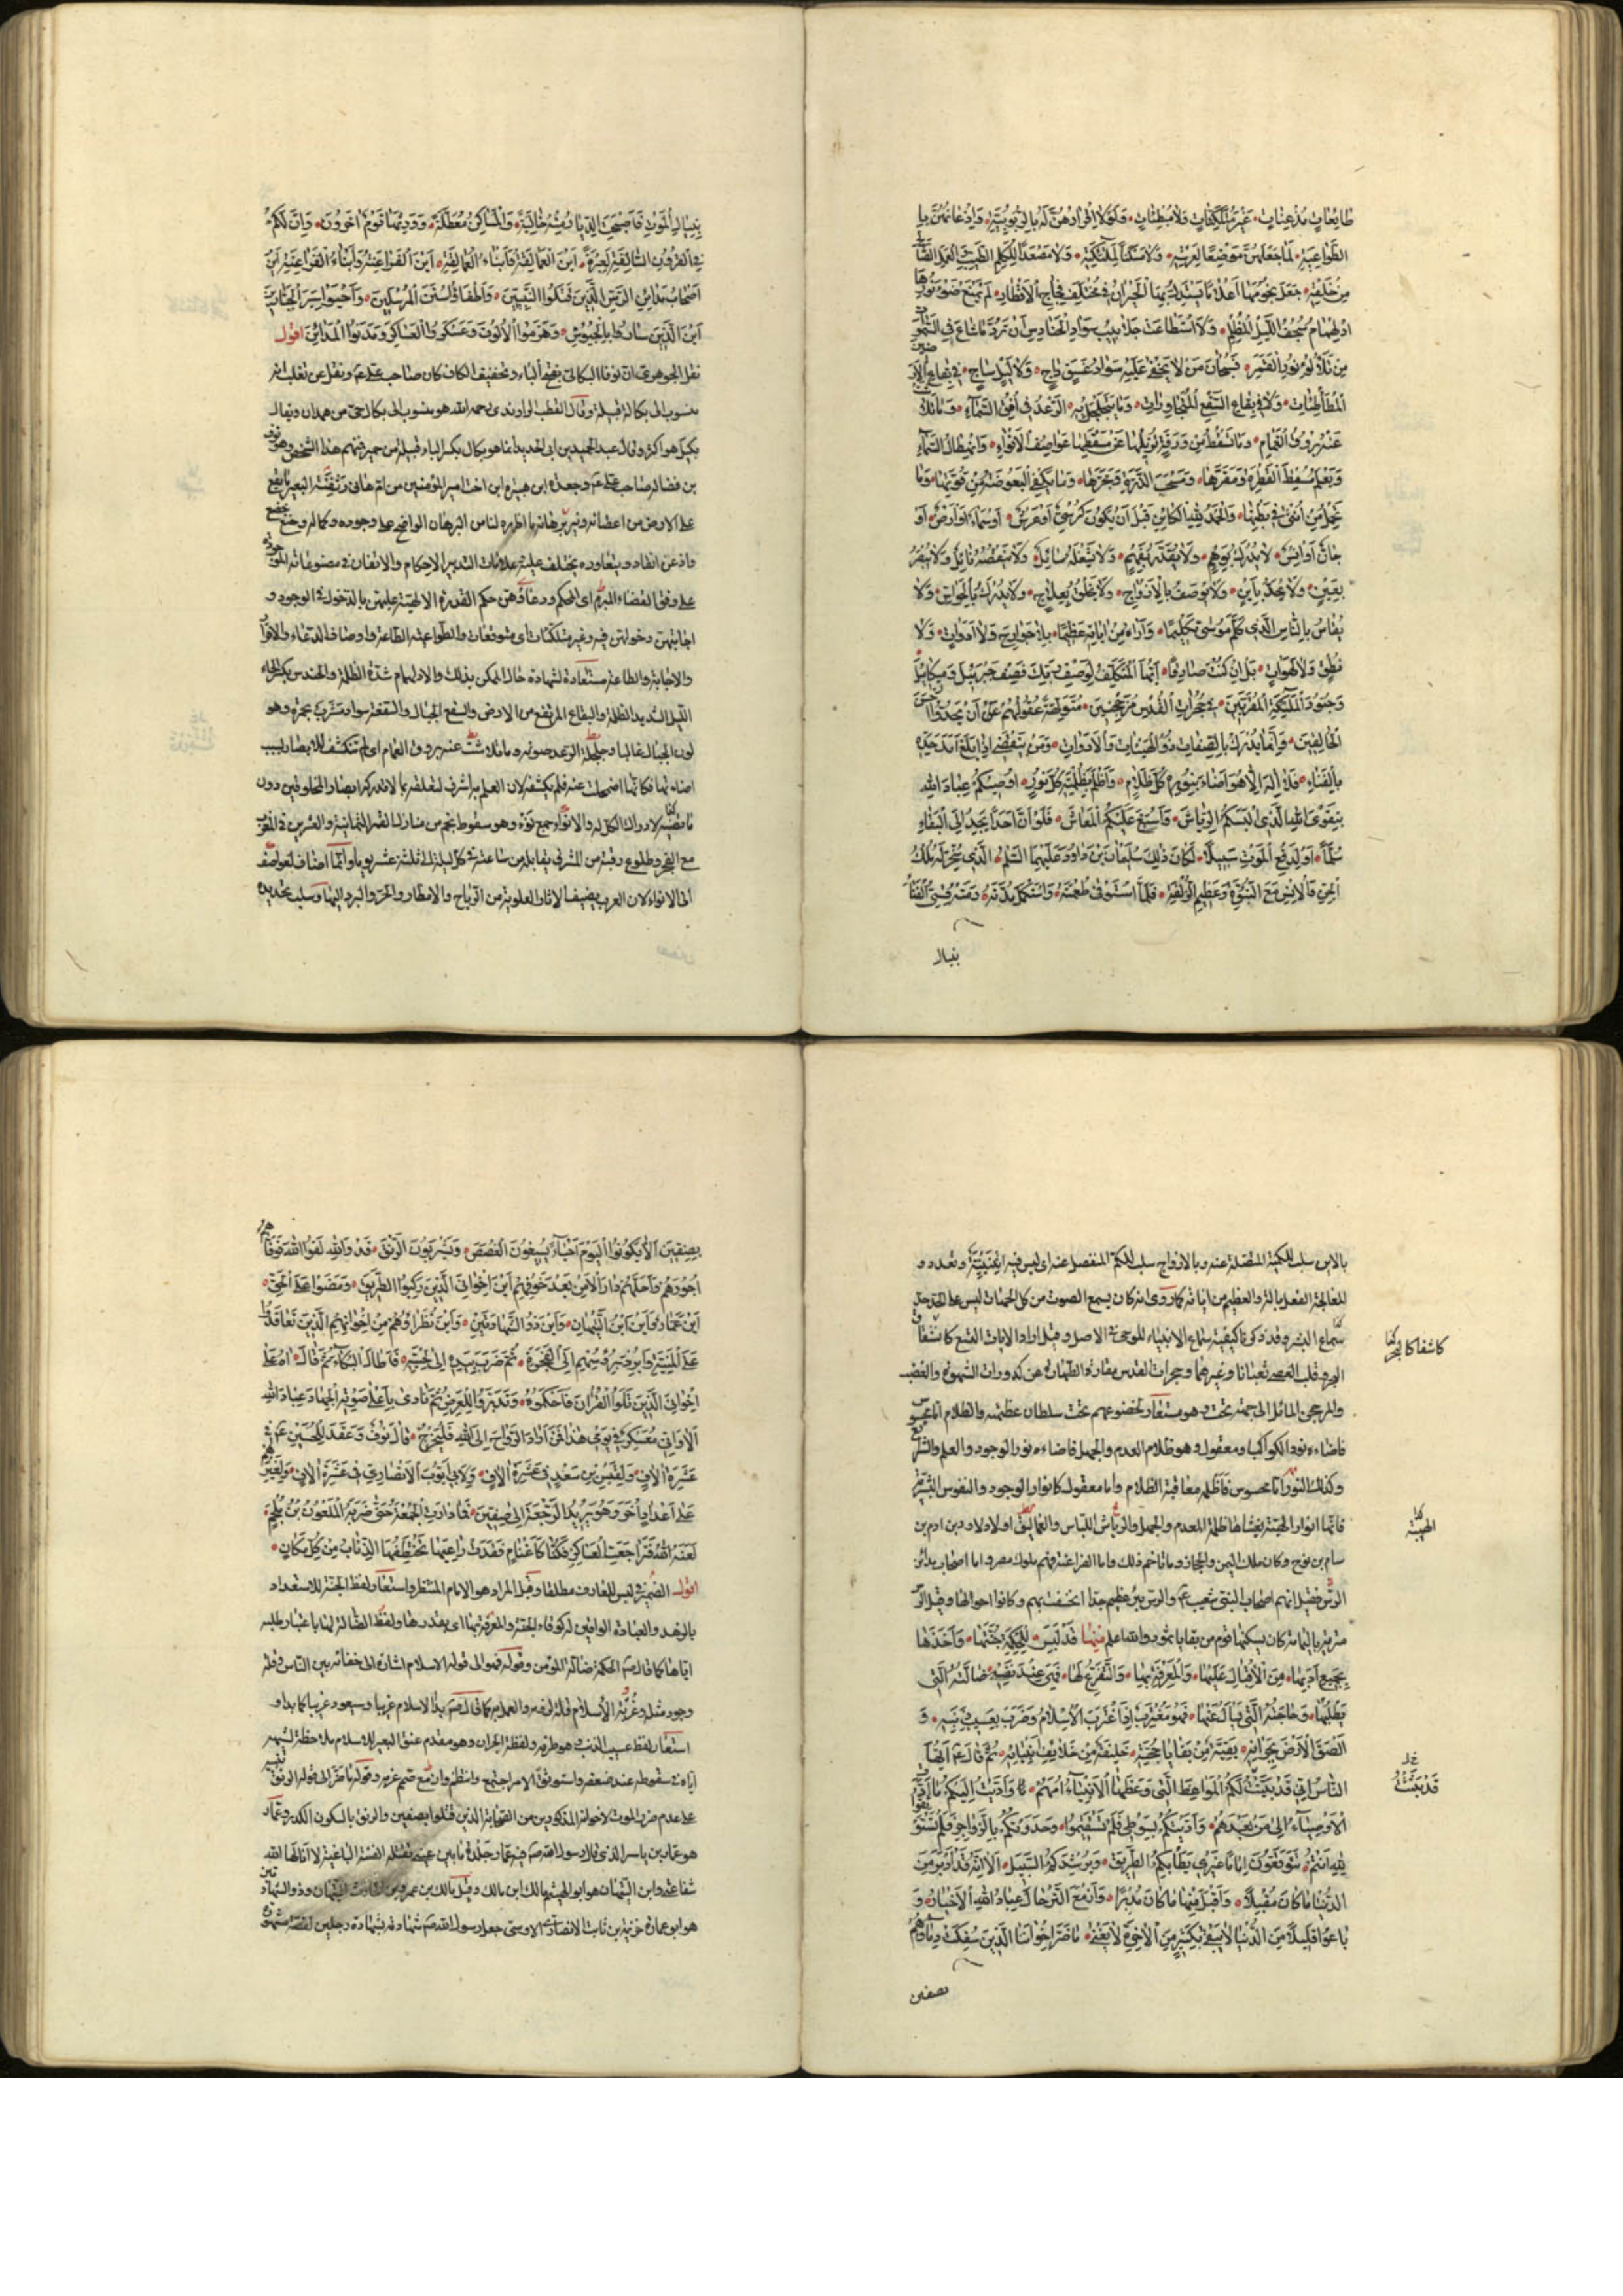 طَايِعَاتٍ مُذْعِنَاتٍ، غَيْرَ مُتَلَكِّئَاتٍ وَلَا مُبْطِئَاتٍ، وَلَوْلَا إِقْرَارُهُنَّ لَهُ بِالرُّبُوبِيَّةِ، وَإِذْعَانُهُنَّ بِا
لطَّوَاعِيَةِ، لَمَا جَعَلَهُنَّ مَوْضِعًا لِعَرْشِهِ، وَلَا مَسْكَنًا لِمَلَائِكَتِهِ، وَلَا مَصْعَدًا لِلْكَلِمِ الطَّيِّبِ وَالْعَمَلِ الصَّالِحِ
مِنْ خَلْقِهِ، جَعَلَ نُجُومَهَا أَعْلَامًا يَسْتَدِلُّ بِهَا الْحَيْرَانُ فِي مُخْتَلِفِ فِجَاجِ الْأَقْطَارِ، لَمْ يَمْنَعْ ضَوْءَ نُورِهَا
ادْلِهْمَامُ سُجُفِ اللَّيْلِ الْمُظْلِمِ، وَلَا اسْتَطَاعَتْ جَلَابِيبُ سَوَادِ الْحَنَادِسِ أَنْ تَرُدَّ مَا شَاعَ فِي السَّمَوَاتِ
مِنْ تَلَأْلُؤِ نُورِ الْقَمَرِ، فَسُبْحَانَ مَنْ لَا يَخْفَى عَلَيْهِ سَوَادُ غَسَقٍ دَاجٍ، وَلَا لَيْلٍ سَاجٍ، فِي بِقَاعِ الْأَرَضِينَ
الْمُتَطَأْطِئَاتِ، وَلَا فِي يَفَاعِ السُّفْعِ الْمُتَجَاوِرَاتِ، وَمَا يَتَجَلْجَلُ بِهِ الرَّعْدُ فِي أُفُقِ السَّمَاءِ، وَمَا تَلَاشَتْ
عَنْهُ بُرُوقُ الْغَمَامِ، وَمَا تَسْقُطُ مِنْ وَرَقَةٍ تُزِيلُهَا عَنْ مَسْقَطِهَا عَوَاصِفُ الْأَنْوَاءِ، وَانْهِطَالُ السَّمَاءِ
وَيَعْلَمُ مَسْقَطَ الْقَطْرَةِ وَمَقَرَّهَا، وَمَسْحَبَ الذَّرَّةِ وَمَجَرَّهَا، وَمَا يَكْفِي الْبَعُوضَةَ مِنْ قُوتِهَا، وَمَا
تَحْمِلُ مِنْ أُنْثَى فِي بَطْنِهَا، وَالْحَمْدُ لِلَّهِ الْكَائِنِ قَبْلَ أَنْ يَكُونَ كُرْسِيٌّ أَوْ عَرْشٌ، أَوْ سَمَاءٌ أَوْ أَرْضٌ، أَوْ
جَانٌّ أَوْ إِنْسٌ، لَا يُدْرَكُ بِوَهْمٍ، وَلَا يُقَدَّرُ بِفَهْمٍ، وَلَا يَشْغَلُهُ سَائِلٌ، وَلَا يَنْقُصُهُ نَائِلٌ وَلَا يُبْصِرُ
بِعَيْنٍ، وَلَا يُحَدُّ بِأَيْنٍ، وَلَا يُوصَفُ بِالْأَزْوَاجِ، وَلَا يَخْلُقُ بِعِلَاجٍ، وَلَا يُدْرَكُ بِالْحَوَاسِّ، وَلَا
يُقَاسُ بِالنَّاسِ الَّذِي كَلَّمَ مُوسَى تَكْلِيمًا، وَأَرَاهُ مِنْ آيَاتِهِ عَظِيمًا، بِلَا جَوَارِحَ وَلَا أَدَوَاتٍ، وَلَا
نُطْقٍ وَلَا لَهَوَاتٍ، بَلْ إِنْ كُنْتَ صَادِقًا، أَيُّهَا الْمُتَكَلِّفُ لِوَصْفِ رَبِّكَ فَصِفْ جَبْرَئِيلَ وَمِيكَائِيلَ
وَجُنُودَ الْمَلَائِكَةِ الْمُقَرَّبِينَ، فِي حُجُرَاتِ الْقُدْسِ مُرْجَحِنِّينَ، مُتَوَلِّهَةً عُقُولُهُمْ عَنْ أَنْ يَحُدُّوا أَحْسَنَ
الْخَالِقِينَ، وَإِنَّمَا يُدْرَكُ بِالصِّفَاتِ ذَوُو الْهَيْئَاتِ وَالْأَدَوَاتِ، وَمَنْ يَنْقَضِي إِذَا بَلَغَ أَمَدَ حَدِّهِ
بِالْفَنَاءِ، فَلَا إِلَهَ إِلَّا هُوَ أَضَاءَ بِنُورِهِ كُلَّ ظَلَامٍ، وَأَظْلَمَ بِظُلْمَتِهِ كُلَّ نُورٍ، أُوصِيكُمْ عِبَادَ اللهِ
بِتَقْوَى اللهِ الَّذِي أَلْبَسَكُمُ الرِّيَاشَ، وَأَسْبَغَ عَلَيْكُمُ الْمَعَاشَ، فَلَوْ أَنَّ أَحَدًا يَجِدُ إِلَى الْبَقَاءِ
سُلَّمًا، أَوْ لِدَفْعِ الْمَوْتِ سَبِيلًا، لَكَانَ ذَلِكَ سُلَيْمَانَ بْنَ دَاوُدَ عَلَيْهِمَا السَّلَمُ، الَّذِي سُخِّرَ لَهُ مُلْكُ
الْجِنِّ وَالْإِنْسِ مَعَ النُّبُوَّةِ وَعَظِيمِ الزُّلْفَةِ، فَلَمَّا اسْتَوْفَى طُعْمَتَهُ، وَاسْتَكْمَلَ مُدَّتَهُ، رَمَتْهُ قِسِيُّ الْفَنَاءِ
بنبال
بِنِبَالِ الْمَوْتِ فَأَصْبَحَتِ الدِّيَارُ مِنْهُ خَالِيَةً، وَالْمَسَاكِنُ مُعَطَّلَةً، وَوَرِثَهَا قَوْمٌ آخَرُونَ، وَإِنَّ لَكُمْ
فِي الْقُرُونِ السَّالِفَةِ لَعِبْرَةً، أَيْنَ الْعَمَالِقَةُ وَأَبْنَاءُ الْعَمَالِقَةِ، أَيْنَ الْفَرَاعِنَةُ وَأَبْنَاءُ الْفَرَاعِنَةِ أَيْنَ
أَصْحَابُ مَدَائِنِ الرَّسِّ الَّذِينَ قَتَلُوا النَّبِيِّينَ، وَأَطْفَأُوا سُنَنَ الْمُرْسَلِينَ، وَأَحْيَوْا سِيَرَ الْجَبَّارِينَ
أَيْنَ الَّذِينَ سَارُوا بِالْجُيُوشِ، وَهَزَمُوا الْأُلُوفَ وَعَسْكَرُوا الْعَسَاكِرَ وَمَدَّنُوا الْمَدَائِنَ اقول
نقل الجوهرى ان نوفا البكالى بفتح الباء وتخفيف الكاف كان صاحب على عم ونقل عن ثعلب انه
منسوب الى بكالة قبيلة وقال القطب الراوندى رحمه الله هو منسوب الى بكال حى من همدان ويقال
بكيل هو اكثر وقال عبد الحميد بن ابى الحديد انما هو بكال بكسر الباء قبيلة من حمير فمنهم هذا الشخص وهو نوف
بن فضالة صاحب على عم وجعدة ابن هبيرة ابن اخت امير المؤمنين من ام هانى وثفنة البعير ما يقع
على الارض من اعضائه ونير برهانه ما اظهره لناس البرهان الواضح على وجوده وكماله وخنع خضع
واذعن انقاد ويتعاوره يختلف عليه علامات التدبير الاحكام والاتقان فى مصنوعاته الموجودة
على وفق القضاء المبرم اى المحكم ودعاءهن حكم القدرة الالهية عليهن بالدخول فى الوجود و
اجابتهن دخولهن فيه وغير متلكئات اى متوقفات والطواعية الطاعة واوصاف الدعاء والاقرار
والاجابة والطاعة مستعارة لشهادة حال الممكن بذلك والادلهمام شدة الظلمة والحندس بكسر الحاء
الليل الشديد الظلمة واليفاع المرتفع من الارض والسفع الجبال والسفعة سواد مشرب بحمرة وهو
لون الجبال غالبا وجلجلة الرعد صوته وما تلاشت عنه بروق الغمام اى لم تنكشف للابصار بسبب
اضاءتها فكانها اضمحلت عنه فلم يكشفه لان العلم به اشرف لتعلقه بما لا تدركه ابصار المخلوقين دون
ما تضيئه لادراك الكل له والانواء جمع نوء وهو سقوط نجم من منازل القمر الثمانية والعشرين فى المغرب
مع الفجر وطلوع رقيبه من المشرق يقابله من ساعته فى كل ليلة الى ثلثة عشر يوما وانما اضاف العواصف
الى الانواء لان العرب يضيف الاثار العلوية من الرياح والامطار والحر والبرد اليها وسلب تحديده
بالاين سلب للكمية المتصلة عنه وبالازواج سلب للكم المنفصل عنه اى ليس فيه اثنينية وتعدد و
للمعالجة الفعل بالة والعظيم من اياته كما روى انه كان يسمع الصوت من كل الجهات ليس على حد
سماع البشر وقد ذكرنا كيفية سماع الانبياء للوحى فى الاصل وقيل اراد الايات التسع كانشقاق
البحر وقلب العصا ثعبانا وغيرهما وحجرات القدس مقار الطهارة عن كدورات الشهوة والغضب
والمرجحن المائل الى جهة تحت وهو مستعار لخضوعهم تحت سلطان عظمته والظلام اما محسوس
فاضاءه نور الكواكب او معقول وهو ظلام العدم والجهل فاضاءه نور الوجود والعلم والشرع
وكذلك النور اما محسوس فاظلمه معاقبة الظلام واما معقول كانوار الوجود والنفوس البشرية
فانها انوار الهية يغشاها ظلمة العدم والجهل والرياش اللباس والعماليق اولاد لاوذ بن ادم بن
سام بن نوح وكان ملك اليمن والحجاز وما تاخم ذلك واما الفراعنة فهم ملوك مصر واما اصحاب مدائن
الرس فقيل انهم اصحاب النبى شعيب عم والرس بئر عظيم جدا انخسفت بهم وكانوا حولها وقيل الرس
قرية باليمامة كان يسكنها قوم من بقايا ثمود والله اعلم مِنْهَا قَدْ لَبِسَ لِلْحِكْمَةِ جُنَّتَهَا، وَأَخَذَهَا
بِجَمِيعِ أَدَبِهَا، مِنَ الْإِقْبَالِ عَلَيْهَا، وَالْمَعْرِفَةِ بِهَا، وَالتَّفَرُّغِ لَهَا، فَهِيَ عِنْدَ نَفْسِهِ ضَالَّتُهُ الَّتِي
يَطْلُبُهَا، وَحَاجَتُهُ الَّتِي يَسْأَلُ عَنْهَا، فَهُوَ مُغْتَرِبٌ إِذَا اغْتَرَبَ الْإِسْلَامُ وَضَرَبَ بِعَسِيبِ ذَنَبِهِ، وَ
أَلْصَقَ الْأَرْضَ بِجِرَانِهِ، بَقِيَّةٌ مِنْ بَقَايَا حُجَّتِهِ، خَلِيفَةٌ مِنْ خَلَائِفِ أَنْبِيَائِهِ، ثُمَّ قَالَ عم أَيُّهَا
النَّاسُ إِنِّي قَدْ بَثَثْتُ لَكُمُ الْمَوَاعِظَ الَّتِي وَعَظَ بِهَا الْأَنْبِيَاءُ أُمَمَهُمْ، وَأَدَّيْتُ إِلَيْكُمْ مَا أَدَّتِ
الْأَوْصِيَاءُ إِلَى مَنْ بَعْدَهُمْ، وَأَدَّبْتُكُمْ بِسَوْطِي فَلَمْ تَسْتَقِيمُوا، وَحَدَوْتُكُمْ بِالزَّوَاجِرِ فَلَمْ تَسْتَوْسِقُوا
لِلَّهِ أَنْتُمْ، تَتَوَقَّعُونَ إِمَامًا غَيْرِي يَطَأُ بِكُمُ الطَّرِيقَ، وَيُرْشِدُكُمُ السَّبِيلَ، أَلَا إِنَّهُ قَدْ أَدْبَرَ مِنَ
الدُّنْيَا مَا كَانَ مُقْبِلًا، وَأَقْبَلَ مِنْهَا مَا كَانَ مُدْبِرًا، وَأَزْمَعَ التَّرْحَالَ عِبَادُ اللهِ الْأَخْيَارُ، وَ
بَاعُوا قَلِيلًا مِنَ الدُّنْيَا لَا يَبْقَى بِكَثِيرٍ مِنَ الْآخِرَةِ لَا يَفْنَى، مَا ضَرَّ إِخْوَانَنَا الَّذِينَ سُفِكَتْ دِمَاؤُهُمْ
بصفين
الهية
قَدْ بَثَثْتُ
بِصِفِّينَ أَلَّا يَكُونُوا الْيَوْمَ أَحْيَاءً يُسِيغُونَ الْغُصَصَ، وَيَشْرَبُونَ الرَّنْقَ، قَدْ وَاللهِ لَقُوا اللهَ فَوَفَّاهُمْ
أُجُورَهُمْ وَأَحَلَّهُمْ دَارَ الْأَمْنِ بَعْدَ خَوْفِهِمْ أَيْنَ إِخْوَانِيَ الَّذِينَ رَكِبُوا الطَّرِيقَ، وَمَضَوْا عَلَى الْحَقِّ،
أَيْنَ عَمَّارٌ وَأَيْنَ ابْنُ التَّيْهَانِ، وَأَيْنَ ذُو الشَّهَادَتَيْنِ، وَأَيْنَ نُظَرَاؤُهُمْ مِنْ إِخْوَانِهِمُ الَّذِينَ تَعَاقَدُوا
عَلَى الْمَنِيَّةِ وَأُبْرِدَ بِرُءُوسِهِمْ إِلَى الْفَجَرَةِ، ثُمَّ ضَرَبَ بِيَدِهِ إِلَى لِحْيَتِهِ، فَأَطَالَ الْبُكَاءَ ثُمَّ قَالَ، أَوْهِ عَلَى
إِخْوَانِيَ الَّذِينَ تَلَوُا الْقُرْآنَ فَأَحْكَمُوهُ، وَتَدَبَّرُوا الْفَرْضَ ثُمَّ نَادَى بِأَعْلَى صَوْتِهِ الْجِهَادَ عِبَادَ اللهِ
أَلَا وَإِنِّي مُعَسْكِرٌ فِي يَوْمِي هَذَا فَمَنْ أَرَادَ الرَّوَاحَ إِلَى اللهِ فَلْيَخْرُجْ، قَالَ نَوْفٌ وَعَقَدَ لِلْحُسَيْنِ عم فِي
عَشَرَةِ آلَافٍ، وَلِقَيْسِ بْنِ سَعْدٍ فِي عَشَرَةِ آلَافٍ، وَلِأَبِي أَيُّوبَ الْأَنْصَارِيِّ فِي عَشَرَةِ آلَافٍ، وَلِغَيْرِهِمْ
عَلَى أَعْدَادٍ أُخَرَ وَهُوَ يُرِيدُ الرَّجْعَةَ إِلَى صِفِّينَ، فَمَا دَارَتِ الْجُمُعَةُ حَتَّى ضَرَبَهُ الْمَلْعُونُ بْنُ مُلْجَمٍ،
لَعَنَهُ اللهُ فَتَرَاجَعَتِ الْعَسَاكِرُ فَكُنَّا كَأَغْنَامٍ فَقَدَتْ رَاعِيَهَا تَخْتَطِفُهَا الذِّئَابُ مِنْ كُلِّ مَكَانٍ،
اقول الضمير فى لبس للعارف مطلقا وقيل المراد هو الامام المنتظر واستعار لفظ الجنة للاستعداد
بالزهد والعبادة الواقيين له كوقاء الجنة والمعرفة بها اى بقدرها ولفظ الضالة لها باعتبار طلبه
اياها كما قال صم الحكمة ضالة المؤمن وقوله فهو الى قوله الاسلام اشارة الى خفائه بين الناس وقلة
وجود مثله وغربة الاسلام قلته وضعف العمل به كما قال صم بدا الاسلام غريبا وسيعود غريبا كما بدا و
استعار لفظ عسيب الذنب هو طرفه ولفظة الجران وهو مقدم عنق البعير للاسلام ملاحظة لشبهه
اياه فى سقوطه عند ضعفه واستوسق الامر اجتمع وانتظم وازمع صمم عزمه وقوله ما ضر الى قوله الرنق تنبيه
على عدم ضرر الموت لاخوانه المذكورين من الصحابة الذين قتلوا بصفين والرنق بالسكون الكدر وعمار
هو عمار بن ياسر الذى قال رسول الله صم فيه عمار جلدة ما بين عينى تقتله الفئة الباغية لا انالها الله
شفاعتى وابن التيهان هو ابو الهيثم مالك ابن مالك وقيل مالك بن عمرو بن الحارث التيهان وذو الشهادتين
هو ابو عمارة خزيمة بن ثابت الانصارى الاوسى جعل رسول الله صم شهادته بشهادة رجلين لقصة مشهورة